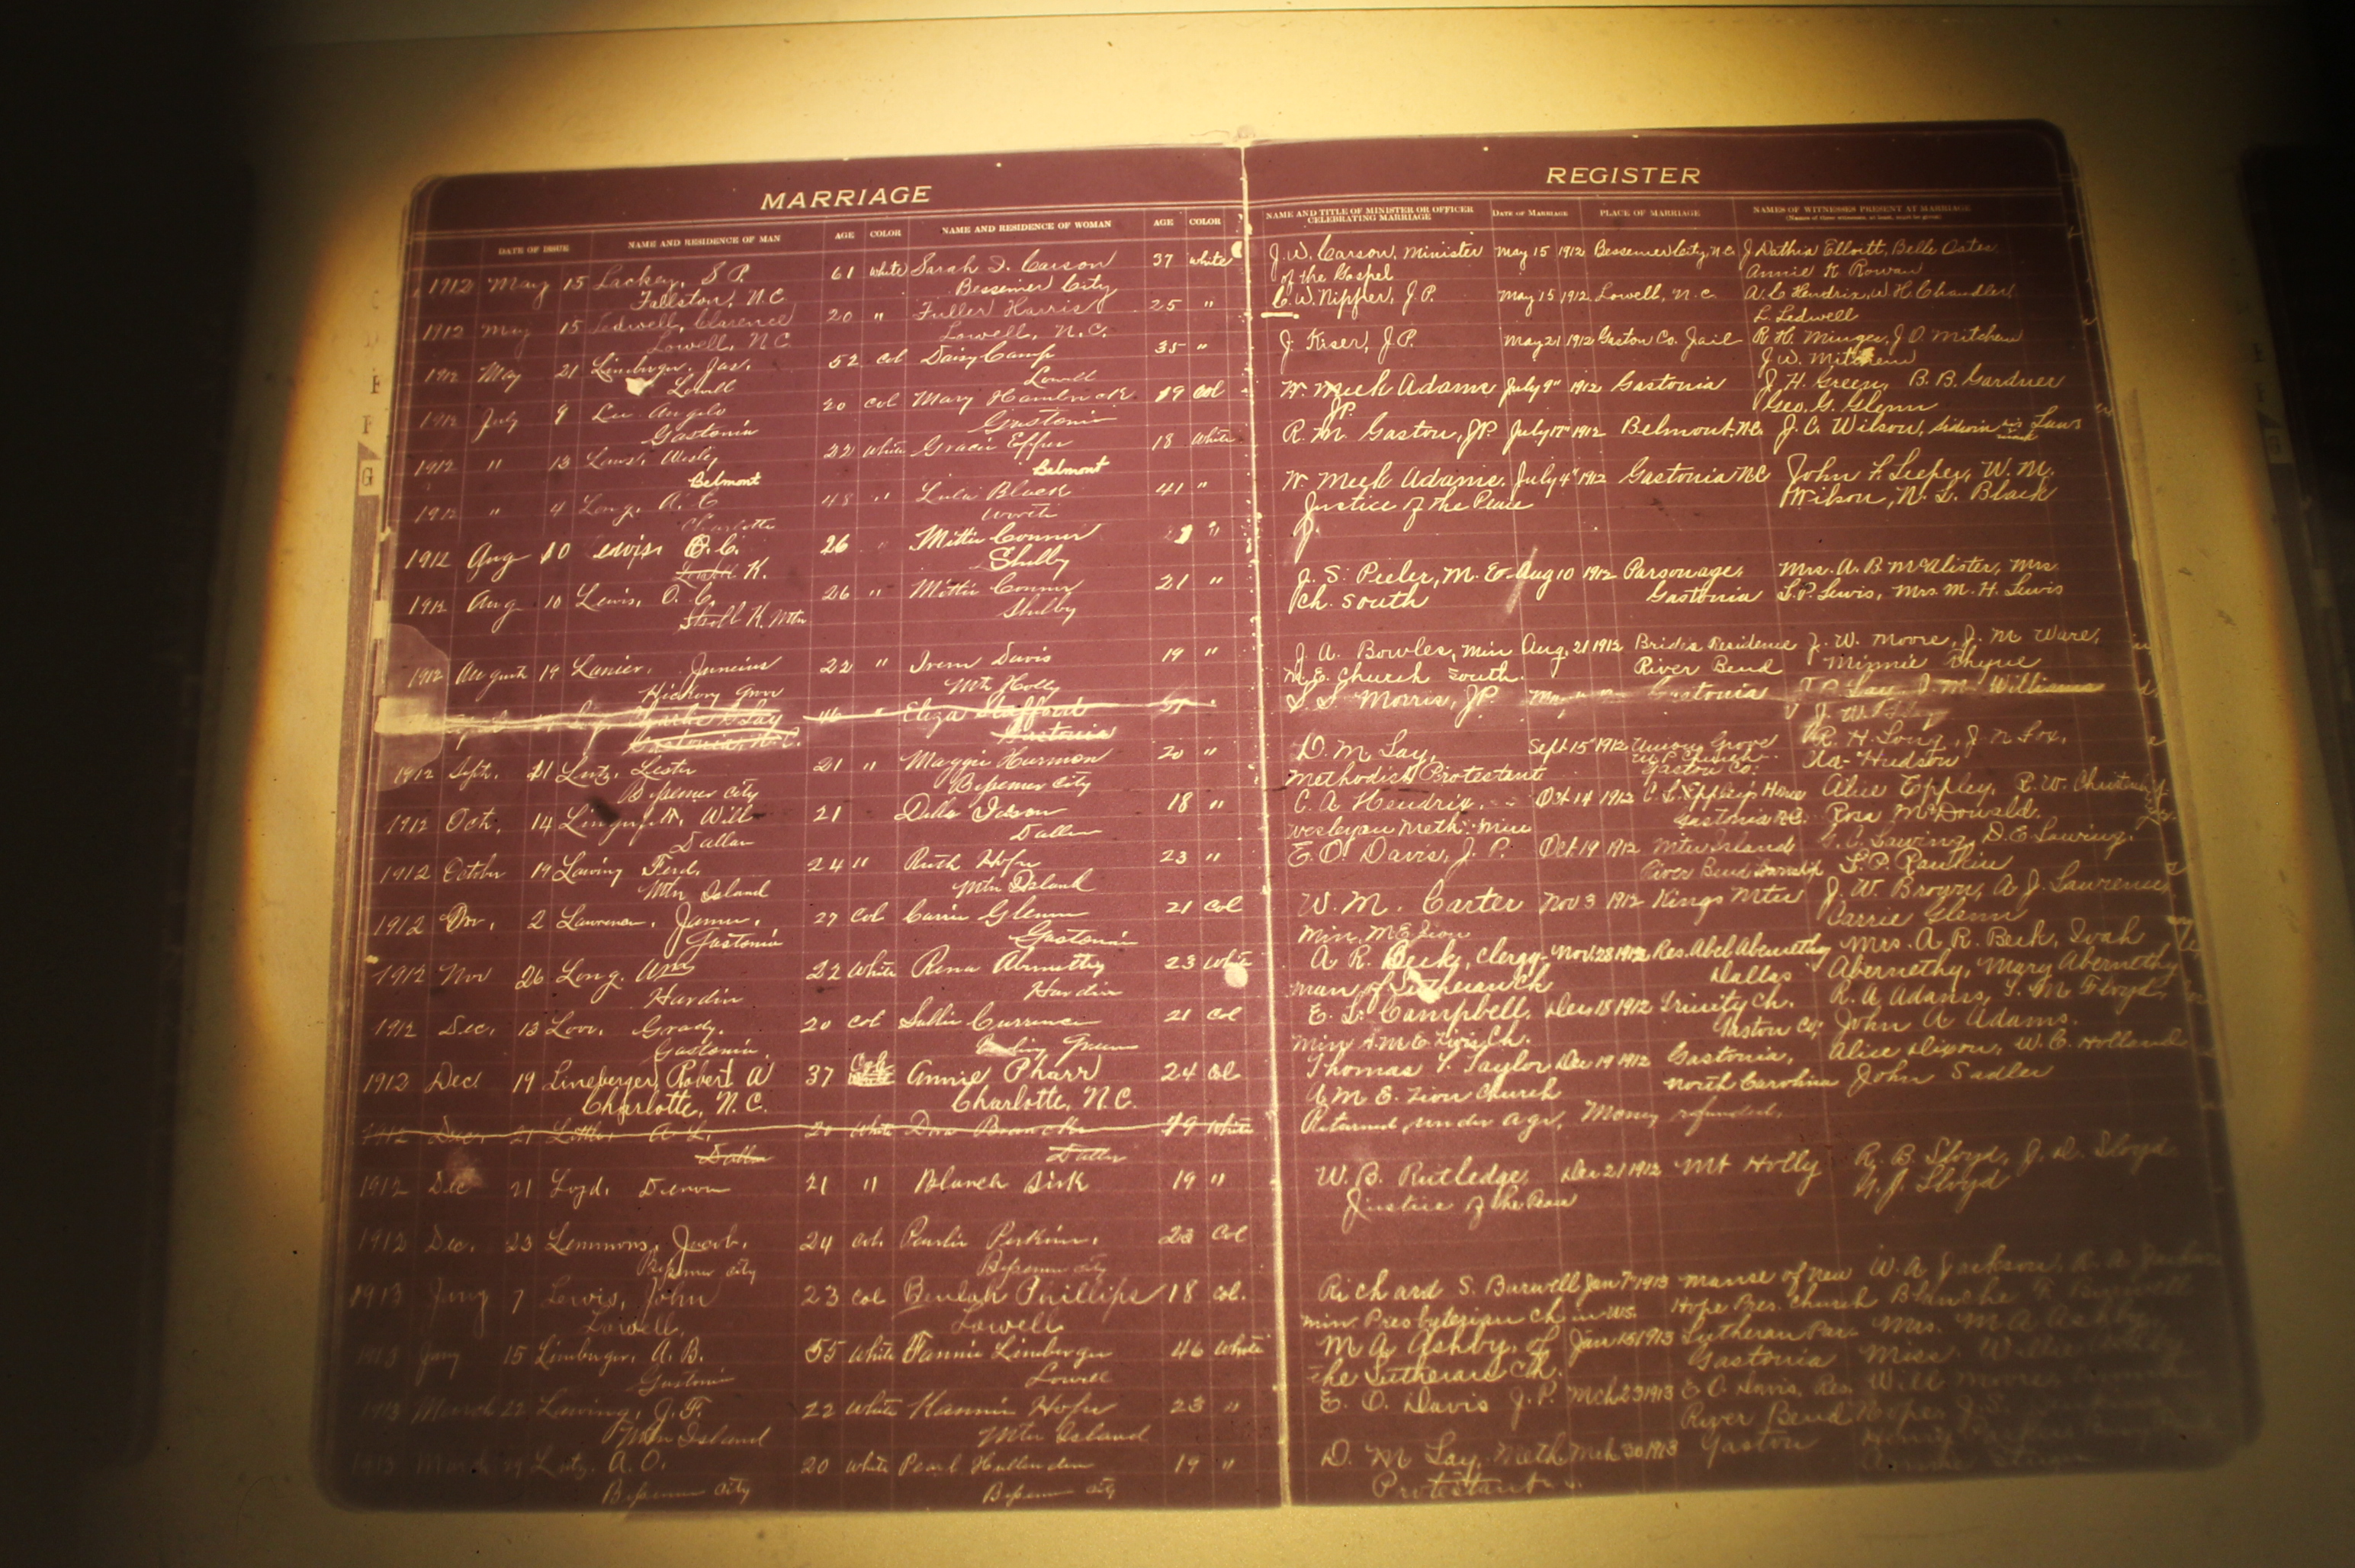 MARRIAGE
REGISTER
DATE OF ISSUE NAME AND RESIDENCE OF MAN AGE COLOR NAME AND RESIDENCE OF WOMAN AGE COLOR
NAME AND TITLE OF MINISTER OR OFFICER CELEBRATING MARRIAGE DATE OF MARRIAGE PLACE OF MARRIAGE NAMES OF WITNESSES PRESENT AT MARRIAGE
1912 May 15 Lackey, S P. 61 white Sarah I. Carson 37 white J. W. Carson, Minister May 15 1912 Bessemer City, N.C.
Fallston, N.C. Bessemer City of the Gospel Annie K Rowan
1912 May 15 Ledwell, Clarence 20 " Fuller Harris 25 " C. W. Nipper, J. P. May 15 1912 Lowell, N.C. A. C Hendrix, W. H. Chandler,
Lowell, N.C Lowell, N.C. L. Ledwell
1912 May 21 Lineberger, Jas. 52 col Daisy Camp 35 " J. Kiser, J P. May 21 1912 Gaston Co. Jail R. H. Minges, J. O. Mitchem
Lowell Lowell J. W. Mitchem
1912 July 9 Lee Angelo 20 col Mary Hambrick 19 col W. Meek Adams July 9" 1912 Gastonia J. H. Green, B. B. Gardner
Gastonia Gastonia JP. Geo. G. Glenn
1912 " 13 Laws, Wesly 22 White Gracie 18 White R. M. Gaston, JP. July 1912 Belmont, N.C. J. C. Wilson,
Belmont Belmont
1912 " 4 Long, A. C 48 " Lula Black 41 " W Meek Adams. July 4" 1912 Gastonia NC John F. Leeper, W. M.
Charlotte Worth Justice of the Peace Wilson, N. L. Black
1912 Aug 10 O. C. 26 " Mittie Conner "
K. Shelby
1912 Aug 10 Lewis, O. C. 26 " Mittie Conner 21 " J. S. Peeler, M. E. Aug 10 1912 Parsonage, Mrs. A. B McAlister, Mrs.
K. Mtn Shelby Ch. South Gastonia L. P. Lewis, Mrs. M. H. Lewis
1912 August 19 Lanier, Juncius 22 " Irene Davis 19 " J. A. Bowles, Min Aug. 21 1912 Brides Residence J. W. Moore, J. M Ware,
Hickory Grove Mtn Holly M. E. Church South. River Bend Minnie Rhyne
46 " Eliza Stafford S S Morris, JP Gastonia Williams
Gastonia, N.C. Gastonia
1912 Sept. 11 Lutz, Lester 21 " Maggie Harmon 20 " D. M. Lay, Sept 15" 1912 Union Grove R. H. Long, J. N Fox,
Bessemer City Bessemer City Methodist Protestant M P Church Gaston Co. Hudson
1912 Oct. 14 Will 21 Della 18 " C. A Hendrix, Oct 14 1912 Home Alice Eppley, R. W.
Dallas Dallas Wesleyan Meth. Min Gastonia NC. Rosa McDowald.
1912 October 19 Lawing Ferd. 24 " Ruth 23 " E. O. Davis, J. P. Oct. 19 1912 Mtn Island G. C. Lawing, D. E. Lawing.
Mtn Island Mtn Island River Bend Township S. P. Rankin
1912 Nov. 2 Lawrence, James. 27 col Carrie Glenn 21 col W. M. Carter Nov 3 1912 Kings Mtn J. W. Brown, A J. Lawrence
Gastonia Gastonia Min. M E Zion Carrie Glenn
1912 Nov 26 Long. Wm 22 White Rena Abernethy 23 White A R. Beck, Clergy- Nov. 28 1912 Res. Abel Abernethy Mrs. A R. Beck, Ivah
Hardin Hardin man of Lutheran Ch Dallas Abernethy, Mary Abernethy
1912 Dec. 13 Love, Grady. 20 col Sallie Currence 21 col E. L. Campbell, Dec 15 1912 Trinity Ch. R. A Adams, Floyd,
Gastonia. Green Min A M E Zion Ch. Gaston Co. John A Adams.
1912 Dec 19 Lineberger, Robert A 37 Col Annie Pharr 24 Col Thomas T. Taylor Dec 19 1912 Gastonia, Alice Dixon, W. C. Holland
Charlotte, N.C. Charlotte, N.C. A M E. Zion Church North Carolina John Sadler
1912 Dec. 21 A. L. 20 White Dora 19 White Returned, under age, Money refunded.
Dallas Dallas
1912 Dec 21 Loyd. 21 " Blanch Sisk 19 " W. B. Rutledge, Dec 21 1912 Mt Holly R. B. Lloyd, J. D. Lloyd
Justice of the Peace N. J. Lloyd
1912 Dec. 23 Lemmons, Jacob. 24 col. Pearlie Perkins. 23 Col
Bessemer City Bessemer City
1913 Jany 7 Lewis, John 23 col Beulah Phillips 18 col. Richard S. Burwell Jan 7" 1913 Manse of New W. A Jackson,
Lowell, Lowell min. Presbyterian Ch in U.S. Hope Pres. Church Blanche F. Burwell
1913 Jany 15 Lineberger, A. B. 55 White Fannie Lineberger 46 White M A Ashby, of Jan 15 1913 Lutheran Par- Mrs. M A Ashby,
Gastonia Lowell the Lutheran Ch. Gastonia Miss. Willie
1913 March 22 Lawing, J. F. 22 White 23 " E. O. Davis J. P. Mch 23 1913 E O. Davis, Res. Will Moore,
Mtn Island Mtn Island River Bend
1913 March 29 Lutz. A. O. 20 White Pearl 19 " D. M Lay, Meth Mch 30 1913 Gaston
Bessemer City Bessemer City Protestant